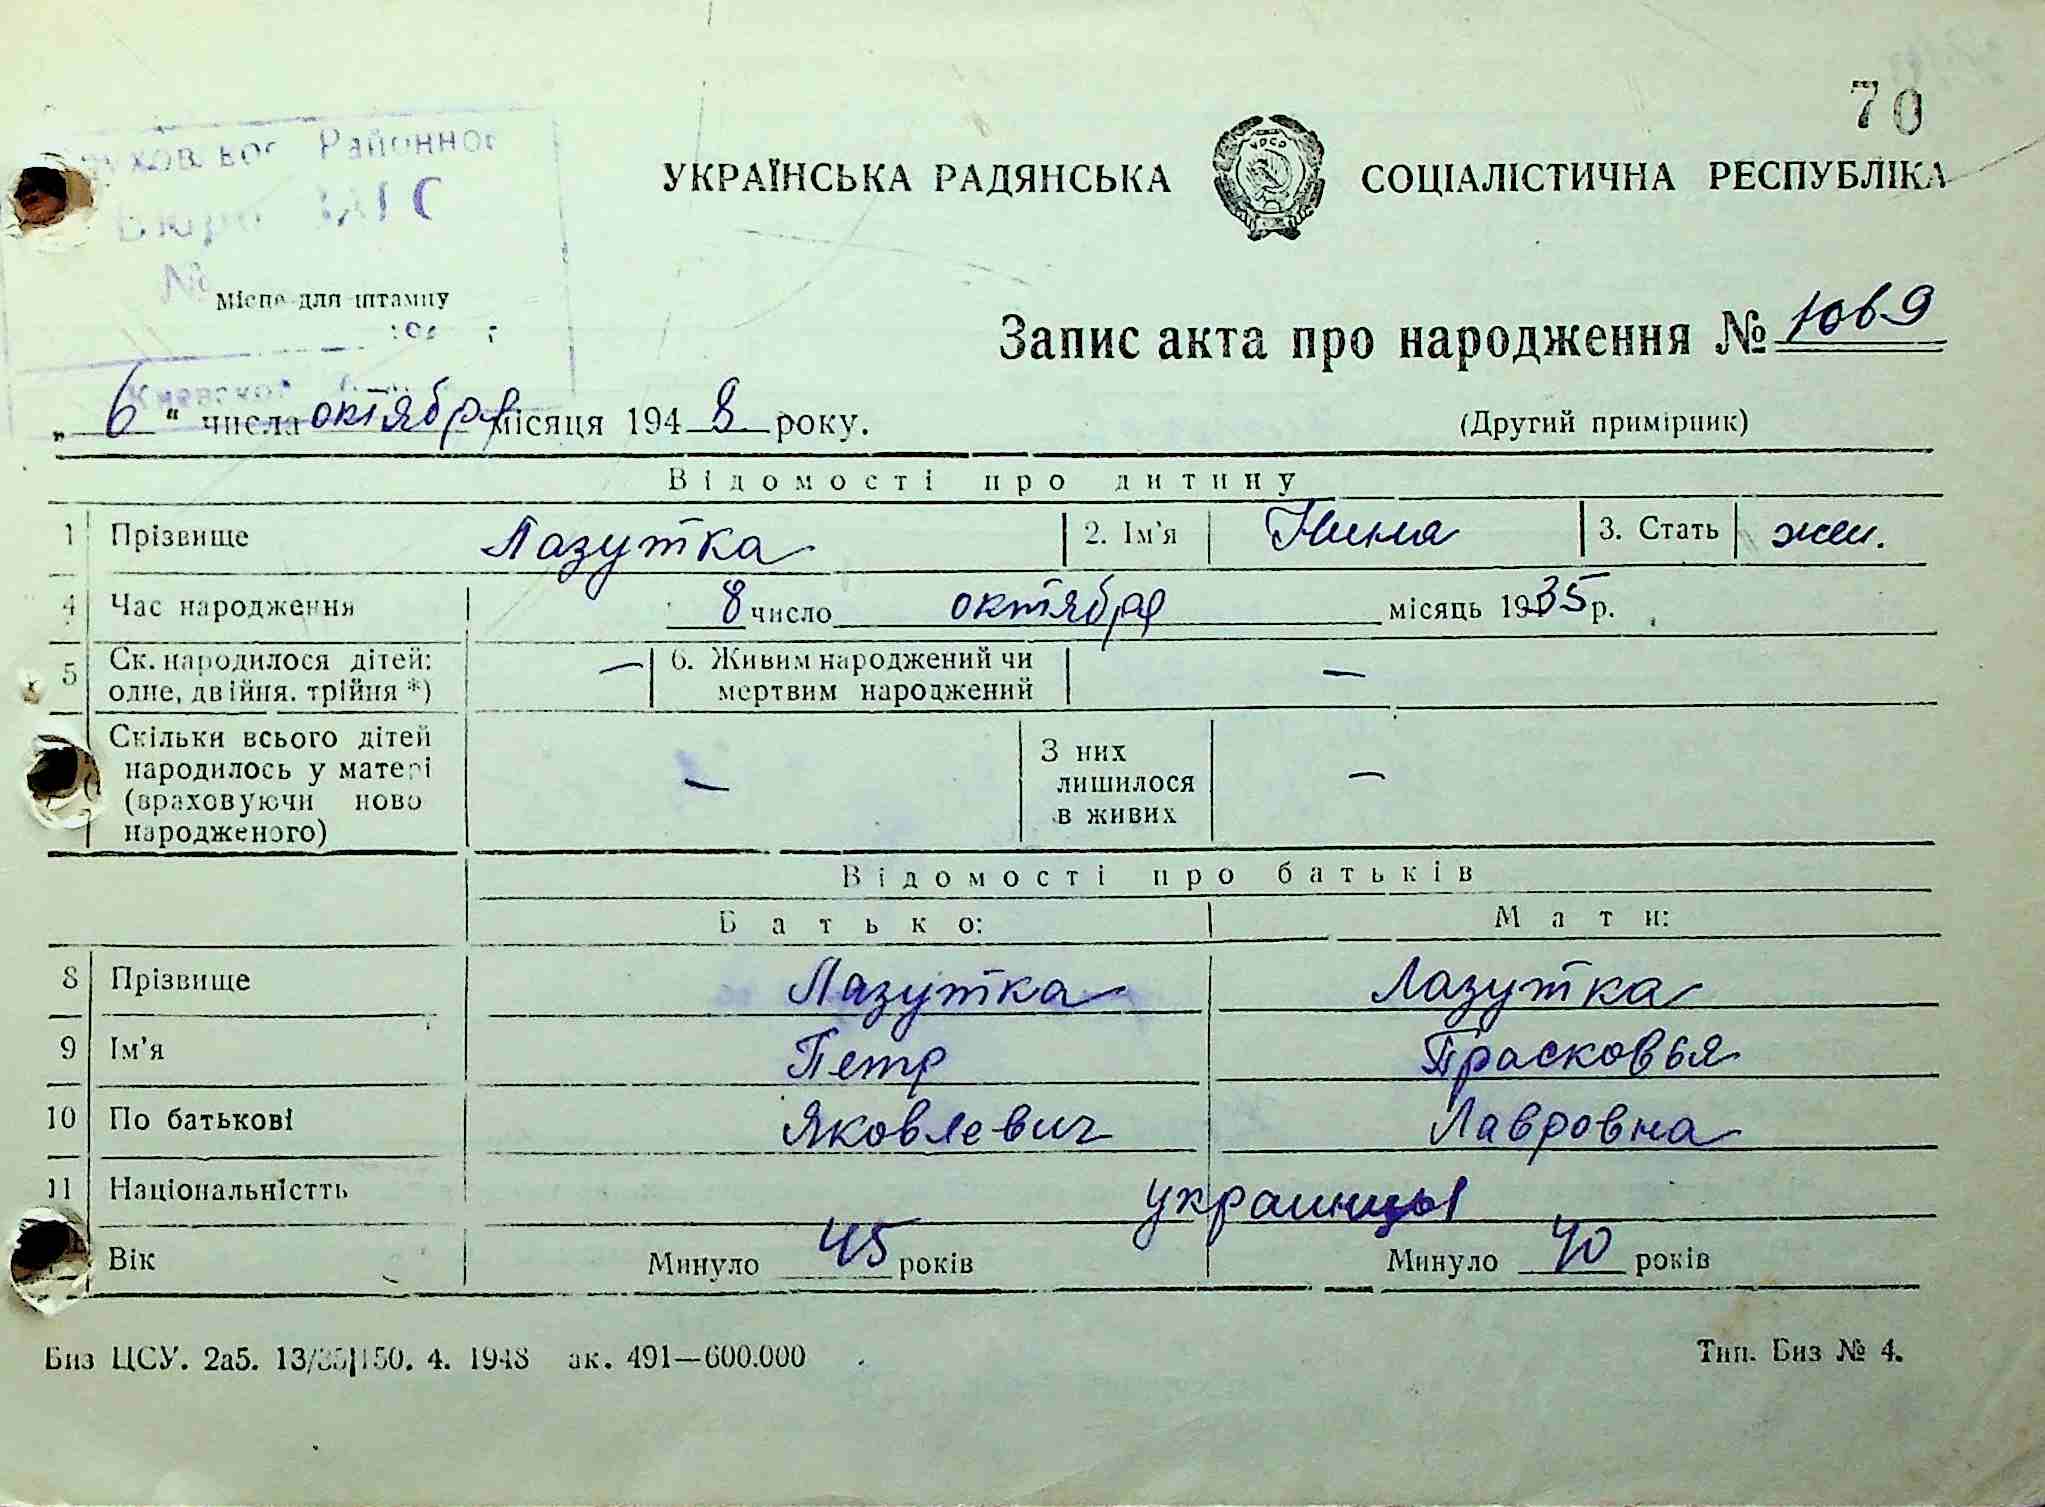 70
Районно
Бюро ЗАГС
№
УКРАЇНСЬКА РАДЯНСЬКА СОЦІАЛІСТИЧНА РЕСПУБЛІКА
УРСР
Місце для штампу
Запис акта про народження № 1069
Киевско
„ 6 “ числа октября місяця 194 8 року.
(Другий примірник)
Відомості про дитину
1 Прізвище Лазутка 2. Ім'я Нина 3. Стать жен.
4 Час народження 8 число октября місяць 1935 р.
5 Ск. народилося дітей: одне, двійня, трійня *) — 6. Живим народжений чи мертвим народжений —
Скільки всього дітей народилось у матері (враховуючи ново народженого) — З них лишилося в живих —
Відомості про батьків
Батько: Мати:
8 Прізвище Лазутка Лазутка
9 Ім'я Петр Прасковья
10 По батькові Яковлевич Лавровна
11 Національністть украинцы
Вік Минуло 45 років Минуло 40 років
Биз ЦСУ. 2а5. 13/35|150. 4. 1948 ак. 491—600.000
Тип. Биз № 4.